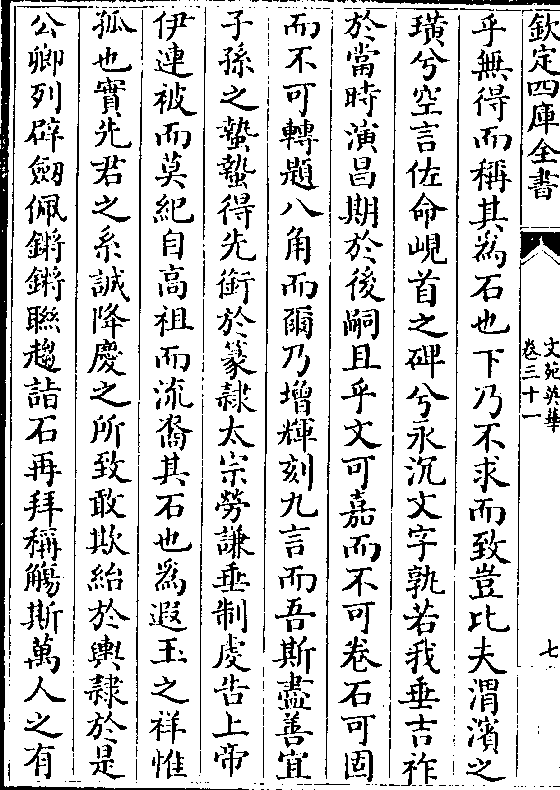 欽定四庫全書
文苑英華
卷三十一
七
乎無得而稱其為石也下乃不求而致豈比夫渭濱之
璜兮空言佐命峴首之碑兮永沉文字孰若我垂吉祚
於當時演昌期於後嗣且乎文可嘉而不可卷石可固
而不可轉題八角而爾乃增輝刻九言而吾斯盡善宜
子孫之蟄蟄得先銜於篆隷太宗勞謙垂制虔告上帝
伊連被而莫紀自高祖而流裔其石也為遐玉之祥惟
狐也實先君之系誠降慶之所致敢欺紿於輿隷於是
公卿列辟劒佩鏘鏘聯趨詣石再拜稱觴斯萬人之有